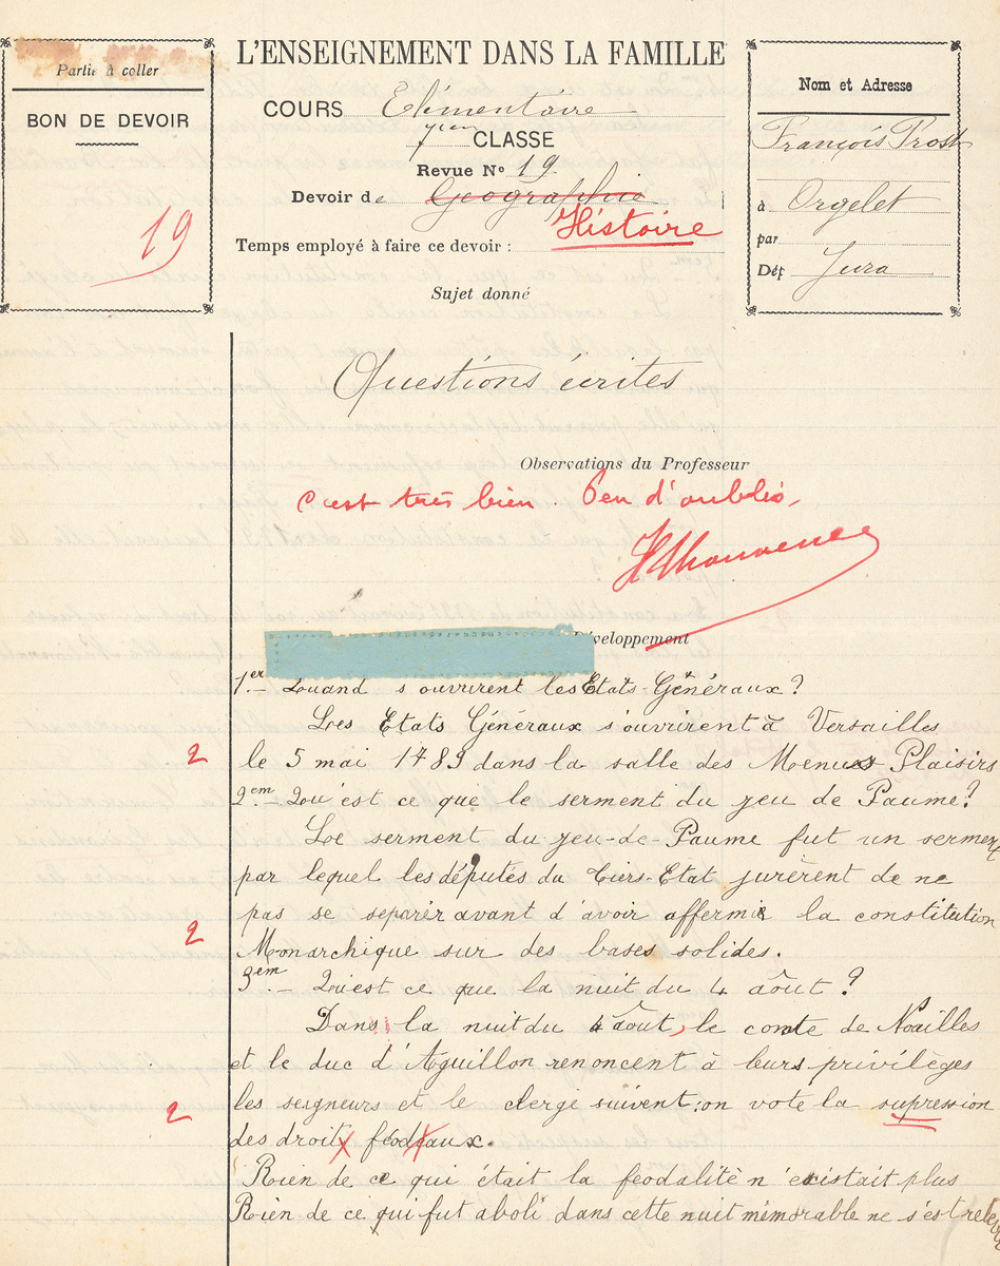 Partie à coller
BON DE DEVOIR
19
L'ENSEIGNEMENT DANS LA FAMILLE
COURS Elémentaire
7ième CLASSE
Revue Nº 19
Devoir de Géographie
Histoire
Temps employé à faire ce devoir :
Sujet donné
Nom et Adresse
François Prost
à Orgelet
par
Dép Jura
Questions écrites
Observations du Professeur
C'est très bien. Peu d'oublis.
Développement
1er— Quand s'ouvrirent les Etats-Généraux?
Les Etats Généraux s'ouvrirent à Versailles
2
le 5 mai 1789 dans la salle des Menus Plaisirs
2em— Qu'est ce que le serment du jeu de Paume?
Le serment du jeu-de-Paume fut un serment
par lequel les députés du Tiers-Etat jurèrent de ne
pas se séparér avant d'avoir affermi la constitution
2
Monarchique sur des bases solides.
3em— Qu'est ce que la nuit du 4 août?
Dans la nuit du 4 août, le comte de Noailles
et le duc d'Aguillon renoncent à leurs privilèges
les seigneurs et le clergé suivent: on vote la supression
2
des droits féodeaux.
Rien de ce qui était la féodalité n'existait plus
Rien de ce qui fut aboli dans cette nuit mémorable ne s'est relevé